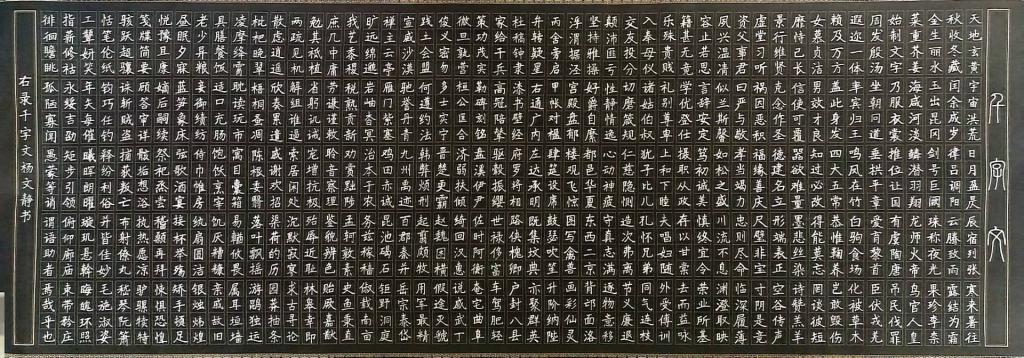 千字文
天地玄黄宇宙洪荒日月盈昃辰宿列张寒来暑往
秋收冬藏闰余成岁律吕调阳云腾致雨露结为霜
金生丽水玉出昆冈剑号巨阙珠称夜光果珍李柰
菜重芥姜海咸河淡鳞潜羽翔龙师火帝鸟官人皇
始制文字乃服衣裳推位让国有虞陶唐吊民伐罪
周发殷汤坐朝问道垂拱平章爱育黎首臣伏戎羌
遐迩一体率宾归王鸣凤在竹白驹食场化被草木
赖及万方盖此身发四大五常恭惟鞠养岂敢毁伤
女慕贞洁男效才良知过必改得能莫忘罔谈彼短
靡恃己长信使可覆器欲难量墨悲丝染诗赞羔羊
景行维贤克念作圣德建名立形端表正空谷传声
虚堂习听祸因恶积福缘善庆尺璧非宝寸阴是竞
资父事君曰严与敬孝当竭力忠则尽命临深履薄
夙兴温凊似兰斯馨如松之盛川流不息渊澄取映
容止若思言辞安定笃初诚美慎终宜令荣业所基
籍甚无竟学优登仕摄职从政存以甘棠去而益咏
乐殊贵贱礼别尊卑上和下睦夫唱妇随外受傅训
入奉母仪诸姑伯叔犹子比儿孔怀兄弟同气连枝
交友投分切磨箴规仁慈隐恻造次弗离节义廉退
颠沛匪亏性静情逸心动神疲守真志满逐物意移
坚持雅操好爵自縻都邑华夏东西二京背邙面洛
浮渭据泾宫殿盘郁楼观飞惊图写禽兽画彩仙灵
丙舍旁启甲帐对楹肆筵设席鼓瑟吹笙升阶纳陛
弁转疑星右通广内左达承明既集坟典亦聚群英
杜稿钟隶漆书壁经府罗将相路侠槐卿户封八县
家给千兵高冠陪辇驱毂振缨世禄侈富车驾肥轻
策功茂实勒碑刻铭盘溪伊尹佐时阿衡奄宅曲阜
微旦孰营桓公匡合济弱扶倾绮回汉惠说感武丁
俊义密勿多士实宁晋楚更霸赵魏困横假途灭虢
践土会盟何遵约法韩弊烦刑起翦颇牧用军最精
宣威沙漠驰誉丹青九州禹迹百郡秦并岳宗泰岱
禅主云亭雁门紫塞鸡田赤城昆池碣石钜野洞庭
旷远绵邈岩岫杳冥治本于农务兹稼穑俶载南亩
我艺黍稷税熟贡新劝赏黜陟孟轲敦素史鱼秉直
庶几中庸劳谦谨敕聆音察理鉴貌辨色贻厥嘉猷
勉其祗植省躬讥诫宠增抗极殆辱近耻林皋幸即
两疏见机解组谁逼索居闲处沉默寂寥求古寻论
散虑逍遥欣奏累遣戚谢欢招渠荷的历园莽抽条
枇杷晚翠梧桐蚤凋陈根委翳落叶飘摇游鹍独运
凌摩绛霄耽读玩市寓目囊箱易輶攸畏属耳垣墙
具膳餐饭适口充肠饱饫烹宰饥厌糟糠亲戚故旧
老少异粮妾御绩纺侍巾帷房纨扇圆洁银烛炜煌
昼眠夕寐蓝笋象床弦歌酒宴接杯举觞矫手顿足
悦豫且康嫡后嗣续祭祀烝尝稽颡再拜悚惧恐惶
笺牒简要顾答审详骸垢想浴执热愿凉驴骡犊特
骇跃超骧诛斩贼盗捕获叛亡布射僚丸嵇琴阮箫
恬笔伦纸钧巧任钓释纷利俗并皆佳妙毛施淑姿
工颦妍笑年矢每催曦晖朗曜璇玑悬斡晦魄环照
指薪修祜永绥吉劭矩步引领俯仰廊庙束带矜庄
徘徊瞻眺孤陋寡闻愚蒙等诮谓语助者焉哉乎也
右录千字文杨文静书